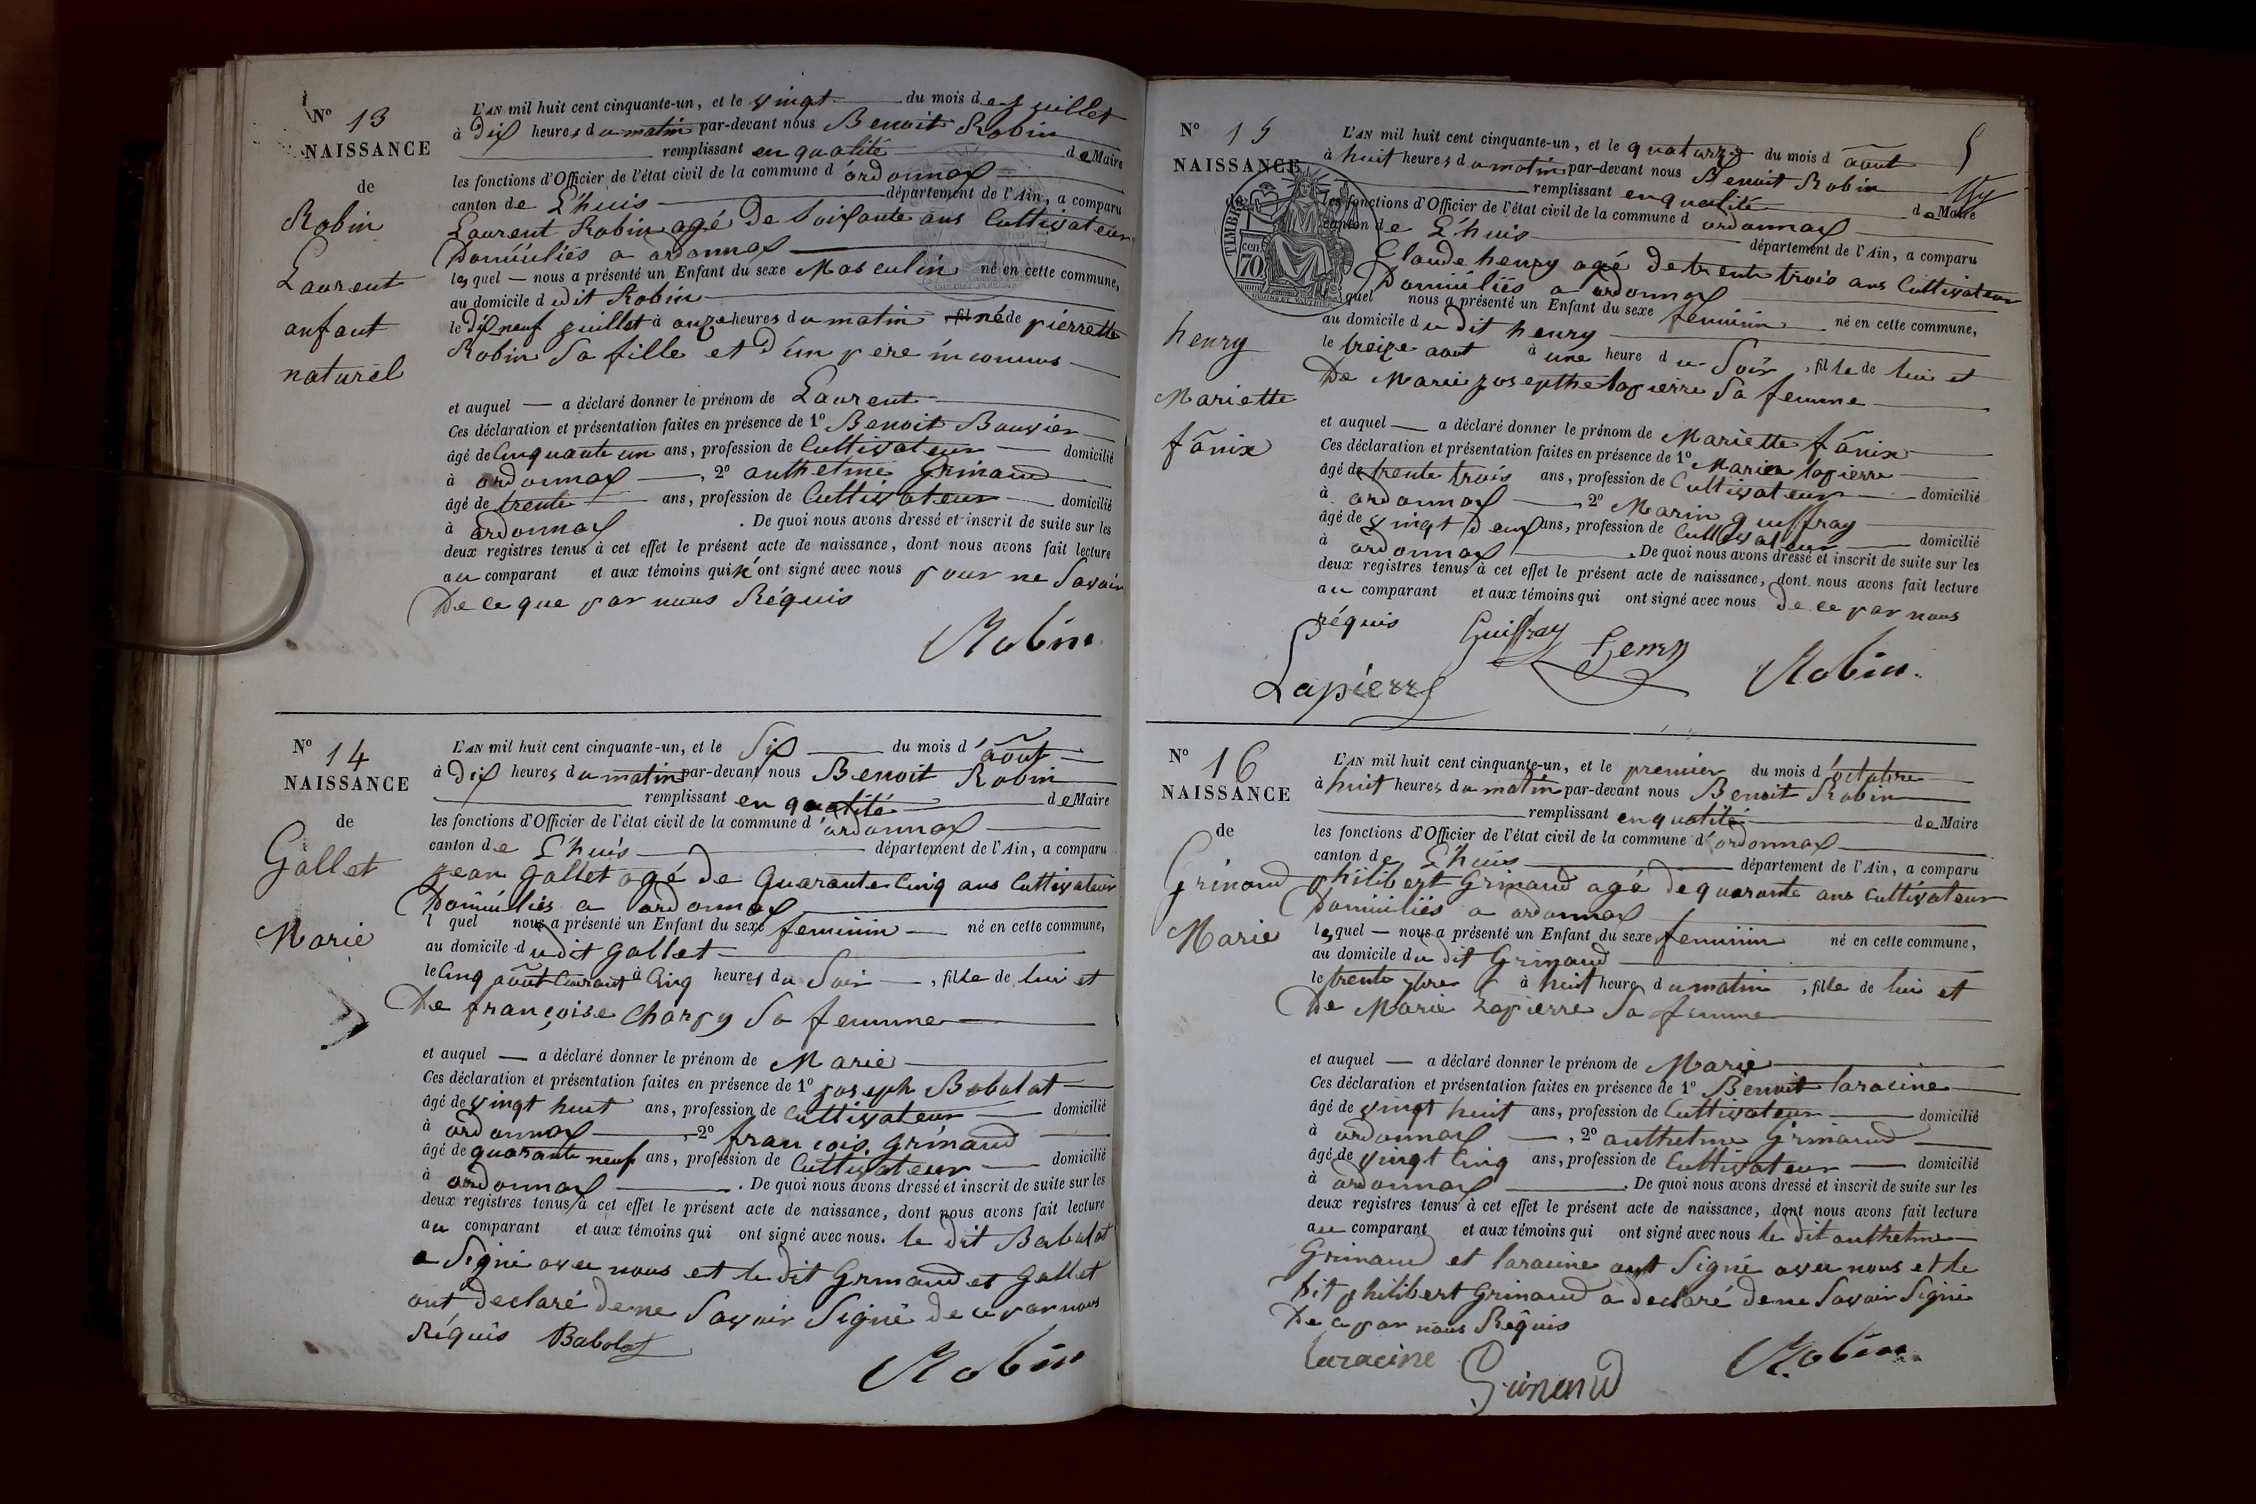 N° 13
NAISSANCE
de
Robin
Laurent
anfant
naturel
L'AN mil huit cent cinquante-un, et le vingt du mois de juillet
à dix heures du matin par-devant nous Benoit Robin
remplissant en qualité de Maire
les fonctions d'Officier de l'état civil de la commune d'ordonnax
canton de L'huis département de l'Ain, a comparu
Laurent Robin agé de soixante ans Cultivateur
Domiciliés a ordonnax
lequel nous a présenté un Enfant du sexe Masculin né en cette commune,
au domicile dudit Robin
le dix neuf juillet à onze heures du matin fil né de pierrette
Robin Sa fille et d'un pere inconnus
et auquel a déclaré donner le prénom de Laurent
Ces déclaration et présentation faites en présence de 1° Benoit Bouvier
âgé de Cinquante un ans, profession de Cultivateur domicilié
à ordonnax , 2° anthelme Grinand
âgé de trente ans, profession de Cultivateur domicilié
à ordonnax . De quoi nous avons dressé et inscrit de suite sur les
deux registres tenus à cet effet le présent acte de naissance, dont nous avons fait lecture
au comparant et aux témoins qui n'ont signé avec nous pour ne Savoir
De ce que par nous Réquis
Robin
N° 14
NAISSANCE
de
Gallet
Marie
L'AN mil huit cent cinquante-un, et le Six du mois d'août
à Dix heures du matin par-devant nous Benoit Robin
remplissant en qualité de Maire
les fonctions d'Officier de l'état civil de la commune d'ordonnax
canton de L'huis département de l'Ain, a comparu
jean Gallet agé de Quarante Cinq ans Cultivateur
Domiciliés a ordonnax
l quel nous a présenté un Enfant du sexe feminin né en cette commune,
au domicile dudit Gallet
le Cinq août Courant à Cinq heures du Soir , fille de lui et
De françoise Charpy Sa femme
et auquel a déclaré donner le prénom de Marie
Ces déclaration et présentation faites en présence de 1° joseph Babolat
âgé de vingt huit ans, profession de Cultivateur domicilié
à ordonnax , 2° francois Grinand
âgé de quarante neuf ans, profession de Cultivateur domicilié
à ordonnax . De quoi nous avons dressé et inscrit de suite sur les
deux registres tenus à cet effet le présent acte de naissance, dont nous avons fait lecture
au comparant et aux témoins qui ont signé avec nous. le dit Babolat
a Signé avec nous et le dit Grinand et Gallet
ont declaré de ne Savoir Signé de ce par nous
Réquis Babolat
Robin
N° 15
NAISSANCE
TIMBRE
70
henry
Mariette
fânix
5
L'AN mil huit cent cinquante-un, et le quatorze du mois d août
à huit heures du matin par-devant nous Benoit Robin
remplissant en qualité de Maire
les fonctions d'Officier de l'état civil de la commune d ordonnax
canton de L'huis département de l'Ain, a comparu
Claude henry agé de trente trois ans Cultivateur
Domiciliés a ordonnax
quel nous a présenté un Enfant du sexe feminin né en cette commune,
au domicile du dit henry
le treize aout à une heure du Soir , fille de lui et
De Marie josepthe lapierre Sa femme
et auquel a déclaré donner le prénom de Mariette fânix
Ces déclaration et présentation faites en présence de 1° Marin lapierre
âgé de trente trois ans, profession de Cultivateur domicilié
à ordonnax 2° Marin guiffray
âgé de vingt deux ans, profession de Cultivateur domicilié
à ordonnax . De quoi nous avons dressé et inscrit de suite sur les
deux registres tenus à cet effet le présent acte de naissance, dont nous avons fait lecture
au comparant et aux témoins qui ont signé avec nous de ce par nous
réquis
Guiffray henry
Lapierre Robin
N° 16
NAISSANCE
de
Grinand
Marie
L'AN mil huit cent cinquante-un, et le premier du mois d'octobre
à huit heures du matin par-devant nous Benoit Robin
remplissant en qualité de Maire
les fonctions d'Officier de l'état civil de la commune d'ordonnax
canton de L'huis département de l'Ain, a comparu
philibert Grinand agé de quarante ans Cultivateur
Domiciliés a ordonnax
lequel nous a présenté un Enfant du sexe feminin né en cette commune,
au domicile du dit Grinand
le trente 7bre à huit heure du matin , fille de lui et
De Marie Lapierre Sa femme
et auquel a déclaré donner le prénom de Marie
Ces déclaration et présentation faites en présence de 1° Benoit laracine
âgé de vingt huit ans, profession de Cultivateur domicilié
à ordonnax , 2° anthelme Grinand
âgé de vingt Cinq ans, profession de Cultivateur domicilié
à ordonnax . De quoi nous avons dressé et inscrit de suite sur les
deux registres tenus à cet effet le présent acte de naissance, dont nous avons fait lecture
au comparant et aux témoins qui ont signé avec nous le dit anthelme
Grinand et laracine ont Signé avec nous et le
dit philibert Grinand a declaré de ne Savoir Signé
De ce par nous Réquis
laracine Grinand Robin